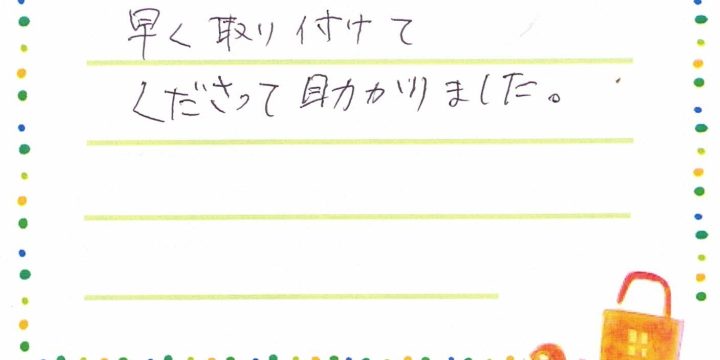 早く取り付けて
くださって助かりました。